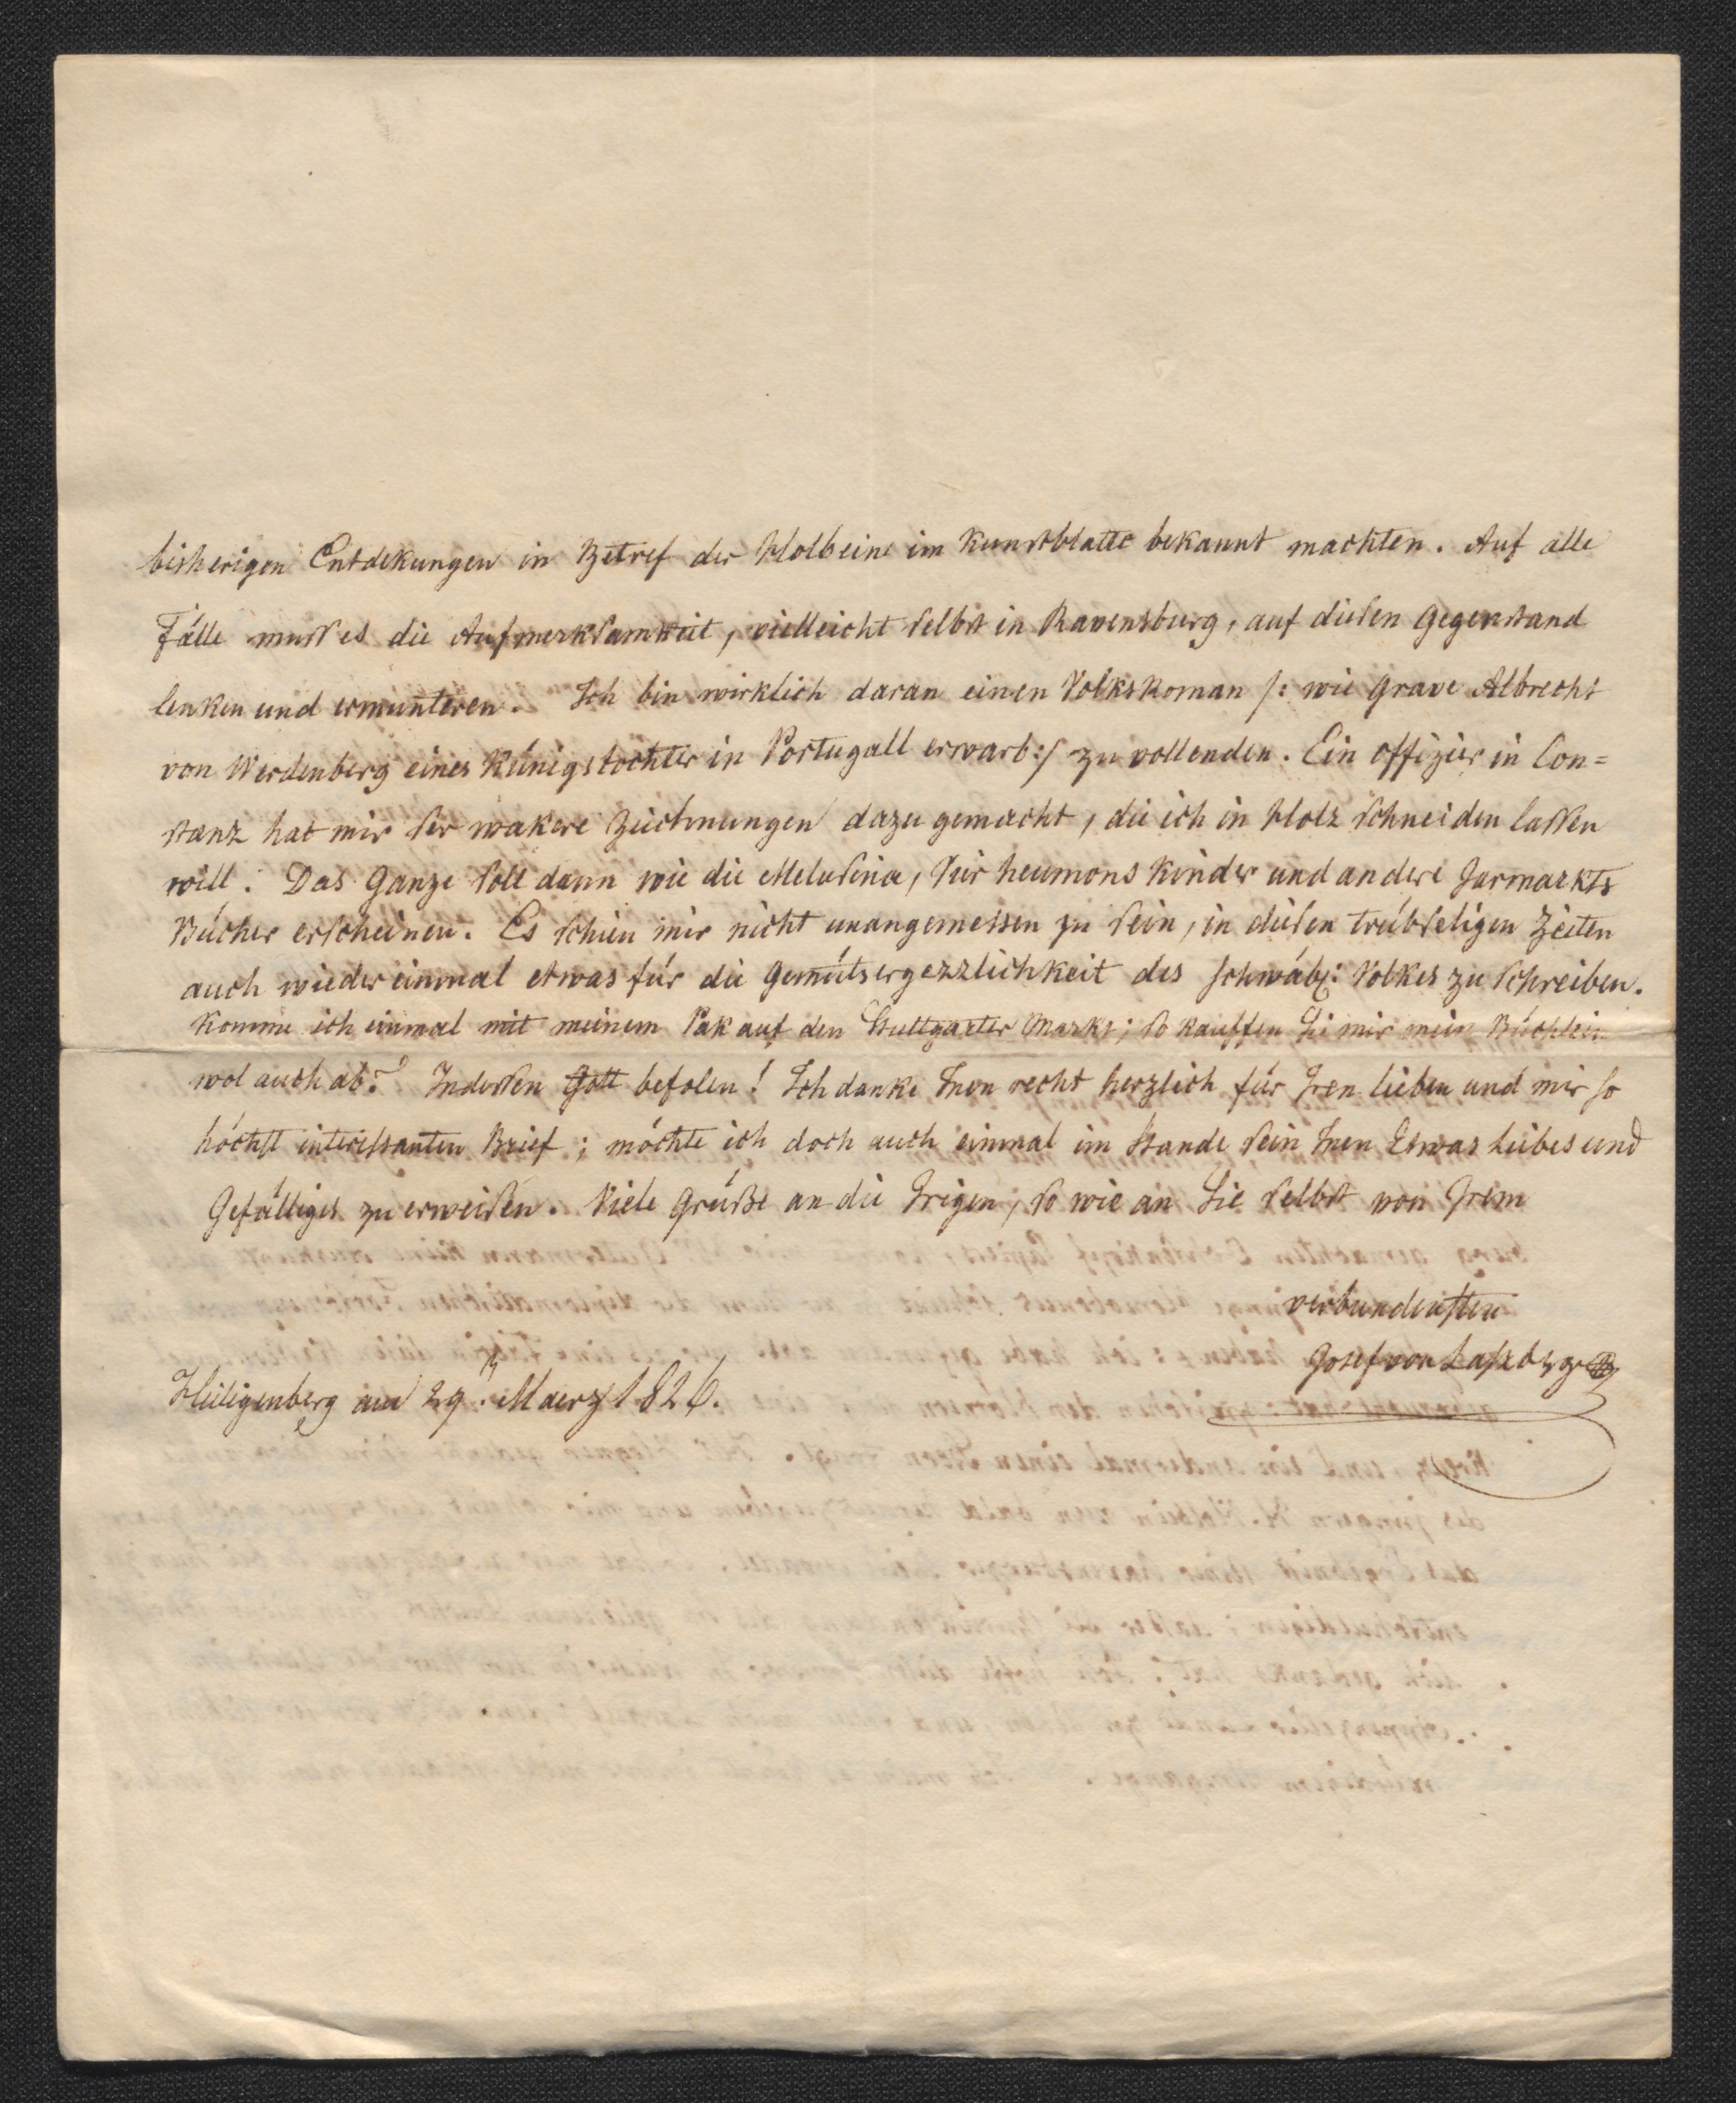 bisherigen Entdekungen in Betref der Holbeine im Kunstblatte bekannt machten. Auf alle
Fälle muss es die Aufmerksamkeit, vielleicht selbst in Ravensburg, auf diesen Gegenstand
lenken und ermunteren. Ich bin wirklich daran einen Volksroman /: wie Grave Albrecht
von Werdenberg eines Künigs tochter in Portugall erwarb :/ zu vollenden. Ein Offizier in Con=
stanz hat mir ser wakere Zeichnungen dazu gemacht, die ich in Holz schneiden lassen
will. Das Ganze soll dann wie die Melusina, Vier heumons Kinder und andere Jarmarkts
Bücher erscheinen. Es schien mir nicht unangemessen zu sein, in diesen trübseligen Zeiten
auch wieder einmal etwas für die Gemütsergezzlichkeit des schwäb: Volkes zu schreiben.
Komme ich einmal mit meinem Pak auf den Stuttgarter Markt; so kauffen Si mir mein Büchlein
wol auch ab? Indessen Gott befolen! Ich danke Inen recht herzlich für Iren lieben und mir so
höchst interessanten Brief; möchte ich doch auch einmal im Stande sein Inen Etwas Liebes und
Gefälliges zu erweisen. Viele Grüße an die Irigen, so wie an Sie selbst von Irem
verbundensten
Josef von Laßberg
Heiligenberg am 29. Maerz 1826.